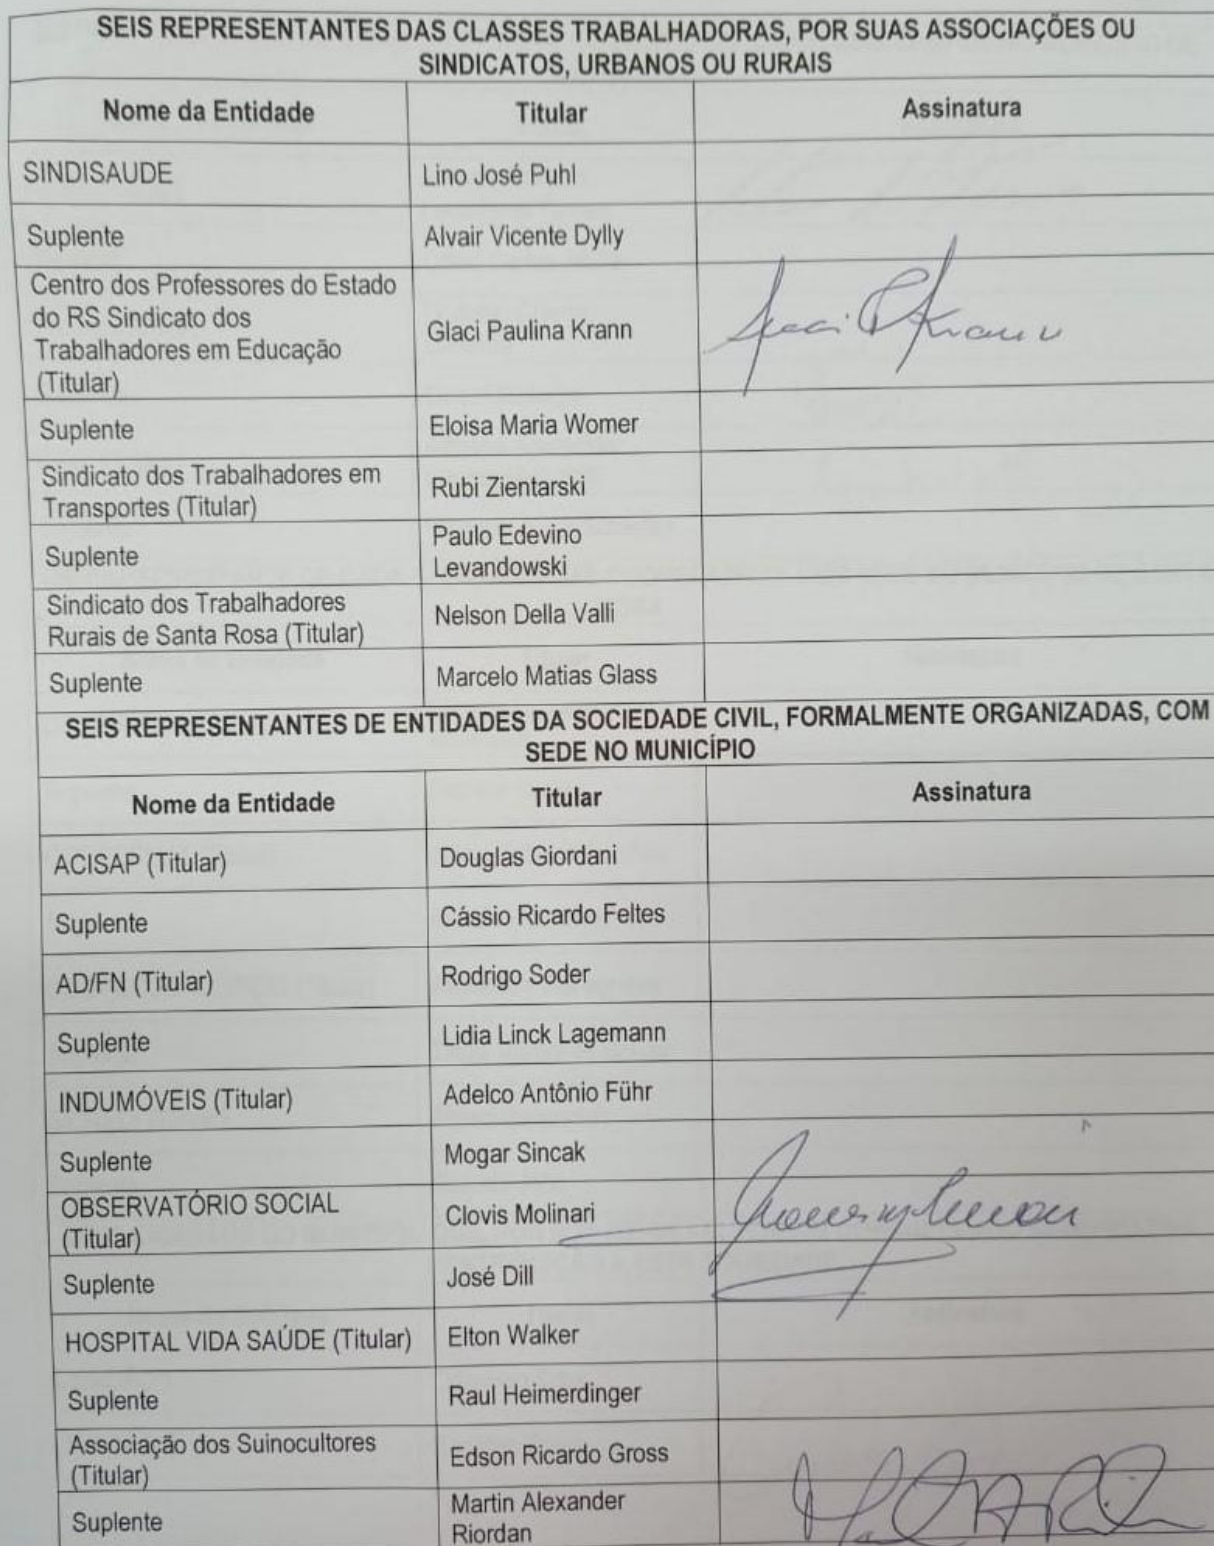 SEIS REPRESENTANTES DAS CLASSES TRABALHADORAS, POR SUAS ASSOCIAÇÕES OU
SINDICATOS, URBANOS OU RURAIS
Nome da Entidade Titular Assinatura
SINDISAUDE Lino José Puhl
Suplente Alvair Vicente Dylly
Centro dos Professores do Estado
do RS Sindicato dos
Trabalhadores em Educação
(Titular)
Glaci Paulina Krann
Suplente Eloisa Maria Womer
Sindicato dos Trabalhadores em
Transportes (Titular)
Rubi Zientarski
Suplente
Paulo Edevino
Levandowski
Sindicato dos Trabalhadores
Rurais de Santa Rosa (Titular)
Nelson Della Valli
Suplente Marcelo Matias Glass
SEIS REPRESENTANTES DE ENTIDADES DA SOCIEDADE CIVIL, FORMALMENTE ORGANIZADAS, COM
SEDE NO MUNICÍPIO
Nome da Entidade Titular Assinatura
ACISAP (Titular) Douglas Giordani
Suplente Cássio Ricardo Feltes
AD/FN (Titular) Rodrigo Soder
Suplente Lidia Linck Lagemann
INDUMÓVEIS (Titular) Adelco Antônio Führ
Suplente Mogar Sincak
OBSERVATÓRIO SOCIAL
(Titular)
Clovis Molinari
Suplente José Dill
HOSPITAL VIDA SAÚDE (Titular) Elton Walker
Suplente Raul Heimerdinger
Associação dos Suinocultores
(Titular)
Edson Ricardo Gross
Suplente
Martin Alexander
Riordan